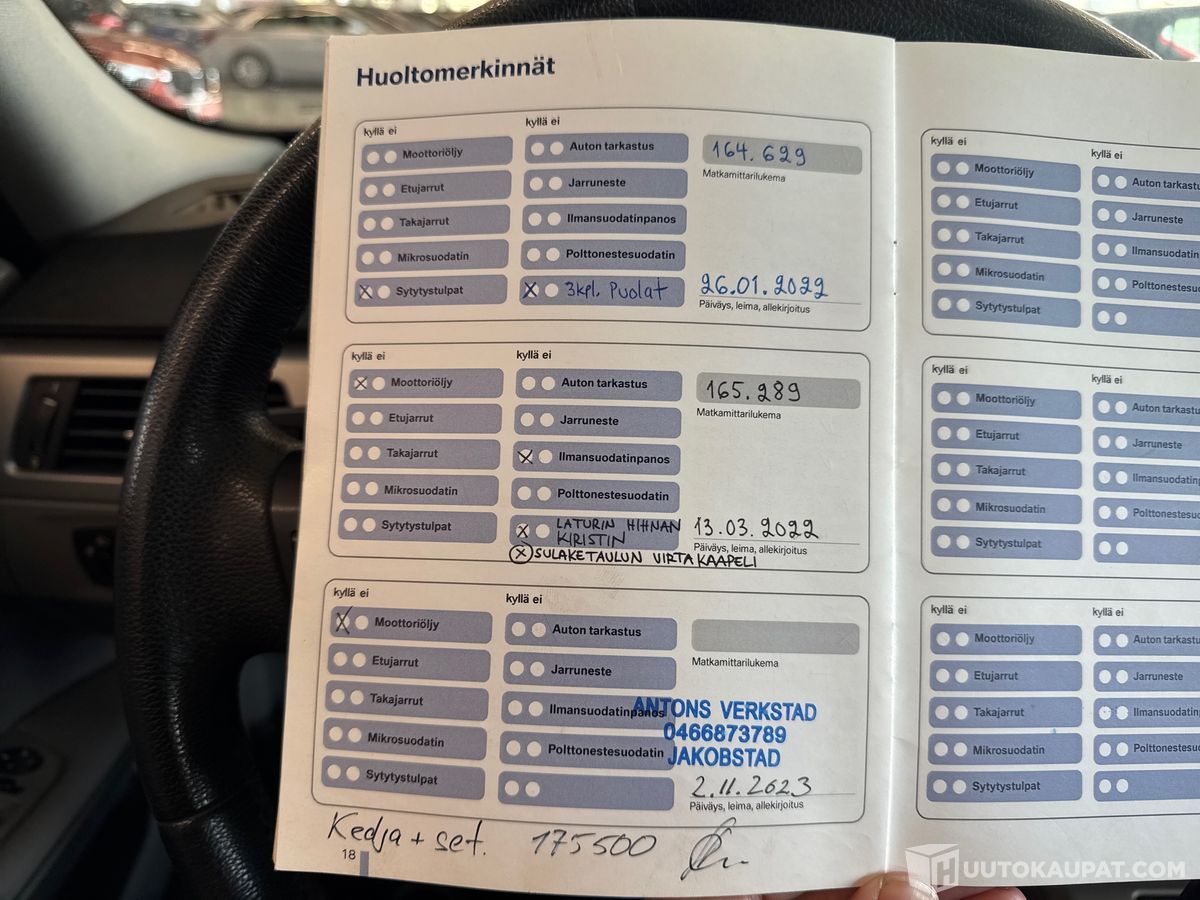 Huoltomerkinnät
kyllä ei
kyllä ei
Moottoriöljy
Auton tarkastus
164.629
Matkamittarilukema
Etujarrut
Jarruneste
Takajarrut
Ilmansuodatinpanos
Mikrosuodatin
Polttonestesuodatin
Sytytystulpat
3kpl. Puolat
26.01.2022
Päiväys, leima, allekirjoitus
kyllä ei
kyllä ei
Moottoriöljy
Auton tarkastus
165.289
Matkamittarilukema
Etujarrut
Jarruneste
Takajarrut
Ilmansuodatinpanos
Mikrosuodatin
Polttonestesuodatin
Sytytystulpat
LATURIN HIHNAN
KIRISTIN
13.03.2022
Päiväys, leima, allekirjoitus
SULAKETAULUN VIRTAKAAPELI
kyllä ei
kyllä ei
Moottoriöljy
Auton tarkastus
Matkamittarilukema
Etujarrut
Jarruneste
Takajarrut
Ilmansuodatinpanos
Mikrosuodatin
Polttonestesuodatin
Sytytystulpat
ANTONS VERKSTAD
0466873789
JAKOBSTAD
2.11.2023
Päiväys, leima, allekirjoitus
Kedja + set. 175500
18
kyllä ei
kyllä ei
Moottoriöljy
Auton tarkastu
Etujarrut
Jarruneste
Takajarrut
Ilmansuodatin
Mikrosuodatin
Polttonestesu
Sytytystulpat
kyllä ei
kyllä ei
Moottoriöljy
Auton tarkastu
Etujarrut
Jarruneste
Takajarrut
Ilmansuodatin
Mikrosuodatin
Polttonestesuo
Sytytystulpat
kyllä ei
kyllä ei
Moottoriöljy
Auton tarkastu
Etujarrut
Jarruneste
Takajarrut
Ilmansuodatin
Mikrosuodatin
Polttonestesuo
Sytytystulpat
HUUTOKAUPAT.COM